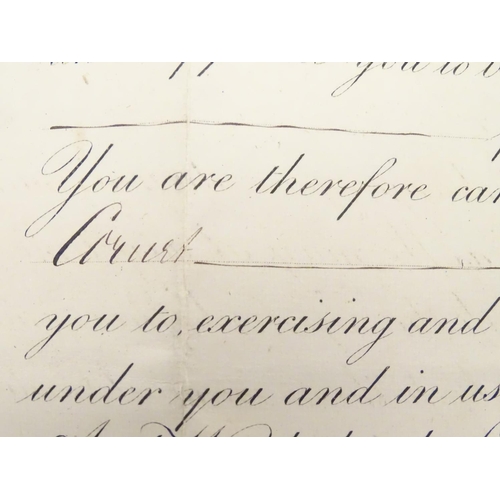 you to
You are therefore
Cornet
you to, exercising and
under you and in